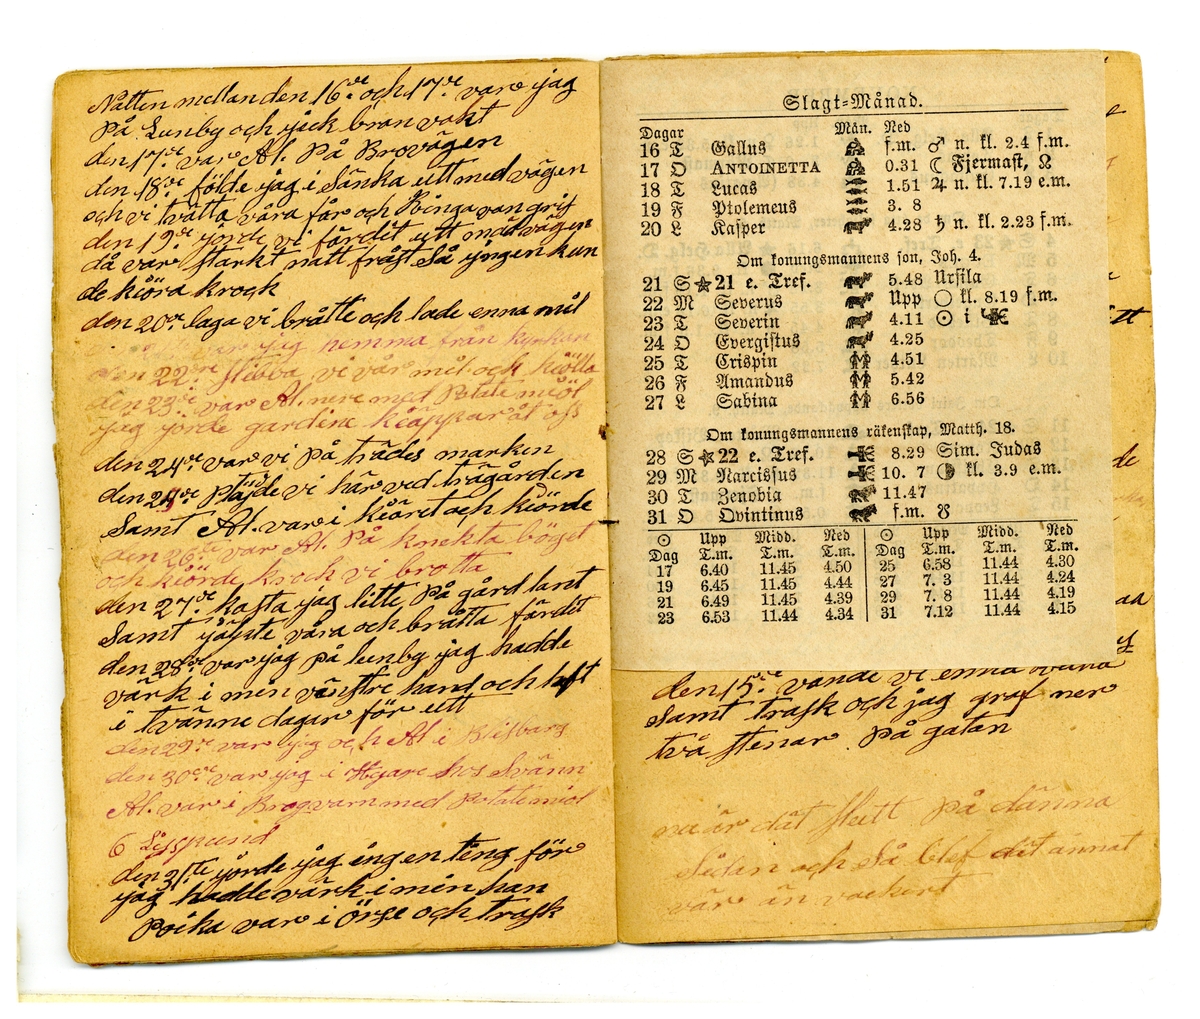 Natten mellan den 16de och 17de var jag
På Lunby och jick bran vakt
den 17de var Al. På Brovägen
den 18de földe jag i Sänka utt med vägen
och vi tvätta våra får och Pinga van grif
den 19de jorde vi färdit utt med vägen
då var starkt natt fråst så ijngen kun
de kiöra krock
den 20de laga vi brätte och lade enna mil
var jag hemma från kyrkan
den 22dre stibba vi vår mil och kiölla
den 23de var Al. nere med Potate miöl
jag jorde gardina kiäppar åt oss
den 24de var vi på trädes marken
den 25de Plöjde vi här ved trägården
Samt Al. var i kiöret och kiörde
den 26de var Al. På knekta böget
och kiörde krock vi brotta
den 27de kasta jag litte på gård lant
Samt jäfste våra och bråtta färdit
den 28de var jag på Lunby jag hadde
värk i min vänstre hand och haft
i tvänne dagar för utt
den 29de var jag och Al i Blisbarg
den 30de var jag i Hgare hos Svänn
Al. var i Brogvarn med Potatemiöl
6 Lisspund
den 31ste jorde jag ingen ting för
jag hadde värk i min han
Poika var i Örse och trask
Slagt-Månad.
Dagar Mån. Ned
16 T Gallus f.m. ♂ n. kl. 2.4 f.m.
17 O ANTOINETTA 0.31 ☾ Fjermast, ☊
18 T Lucas 1.51 ♃ n. kl. 7.19 e.m.
19 F Ptolemeus 3. 8
20 L Kasper 4.28 ♄ n. kl. 2.23 f.m.
Om konungsmannens son, Joh. 4.
21 S ★ 21 e. Tref. 5.48 Ursila
22 M Severus Upp ○ kl. 8.19 f.m.
23 T Severin 4.11 ☉ i
24 O Evergistus 4.25
25 T Crispin 4.51
26 F Amandus 5.42
27 L Sabina 6.56
Om konungsmannens räkenskap, Matth. 18.
28 S ★ 22 e. Tref. 8.29 Sim. Judas
29 M Narcissus 10. 7 ◑ kl. 3.9 e.m.
30 T Zenobia 11.47
31 O Qvintinus f.m. ☋
☉ Upp Midd. Ned ☉ Upp Midd. Ned
Dag T.m. T.m. T.m. Dag T.m. T.m. T.m.
17 6.40 11.45 4.50 25 6.58 11.44 4.30
19 6.45 11.45 4.44 27 7. 3 11.44 4.24
21 6.49 11.45 4.39 29 7. 8 11.44 4.19
23 6.53 11.44 4.34 31 7.12 11.44 4.15
den 15de vande vi enna
Samt trask och jag graf ner
två stenar På gatan
nu är dät slutt På dänna
Sidan och så blef dit annat
vär än vackert